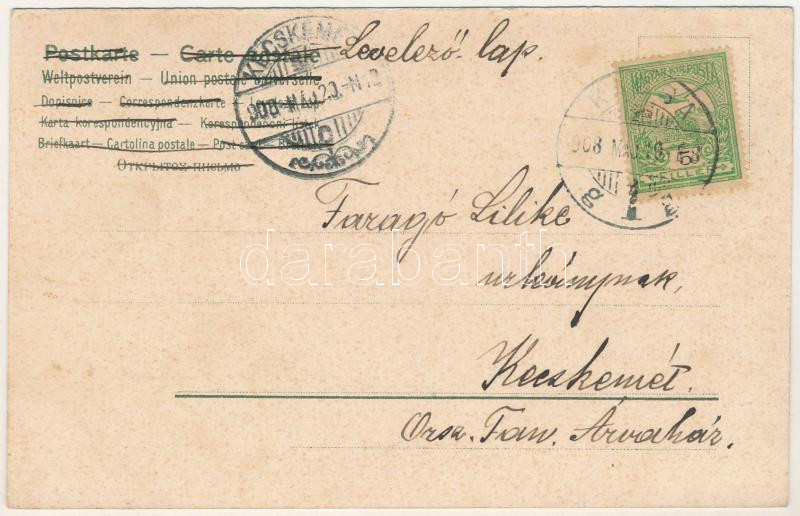 Postkarte — Carte postale Levelező-lap.
Weltpostverein — Union postale universelle
Dopisnice — Correspondenzkarte
Karta korespondencyjna — Korespondenční lístek
Briefkaart — Cartolina postale — Post
Открытое письмо
KECSKEMÉT
908 MÁJ 20
MAGYAR KIR. POSTA
908 MÁJ 19
5
FILLÉR
Faragó Lilike
urleánynak,
darabanth
Kecskemét.
Orsz. Tan. Árvaház.